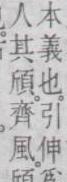 本義也。引伸
人其頎。齊風。